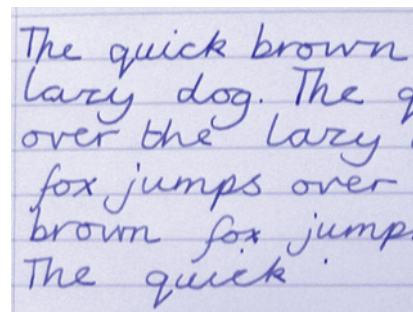 The quick brown
lazy dog. The q
over the lazy
fox jumps over
brown fox jumps
The quick